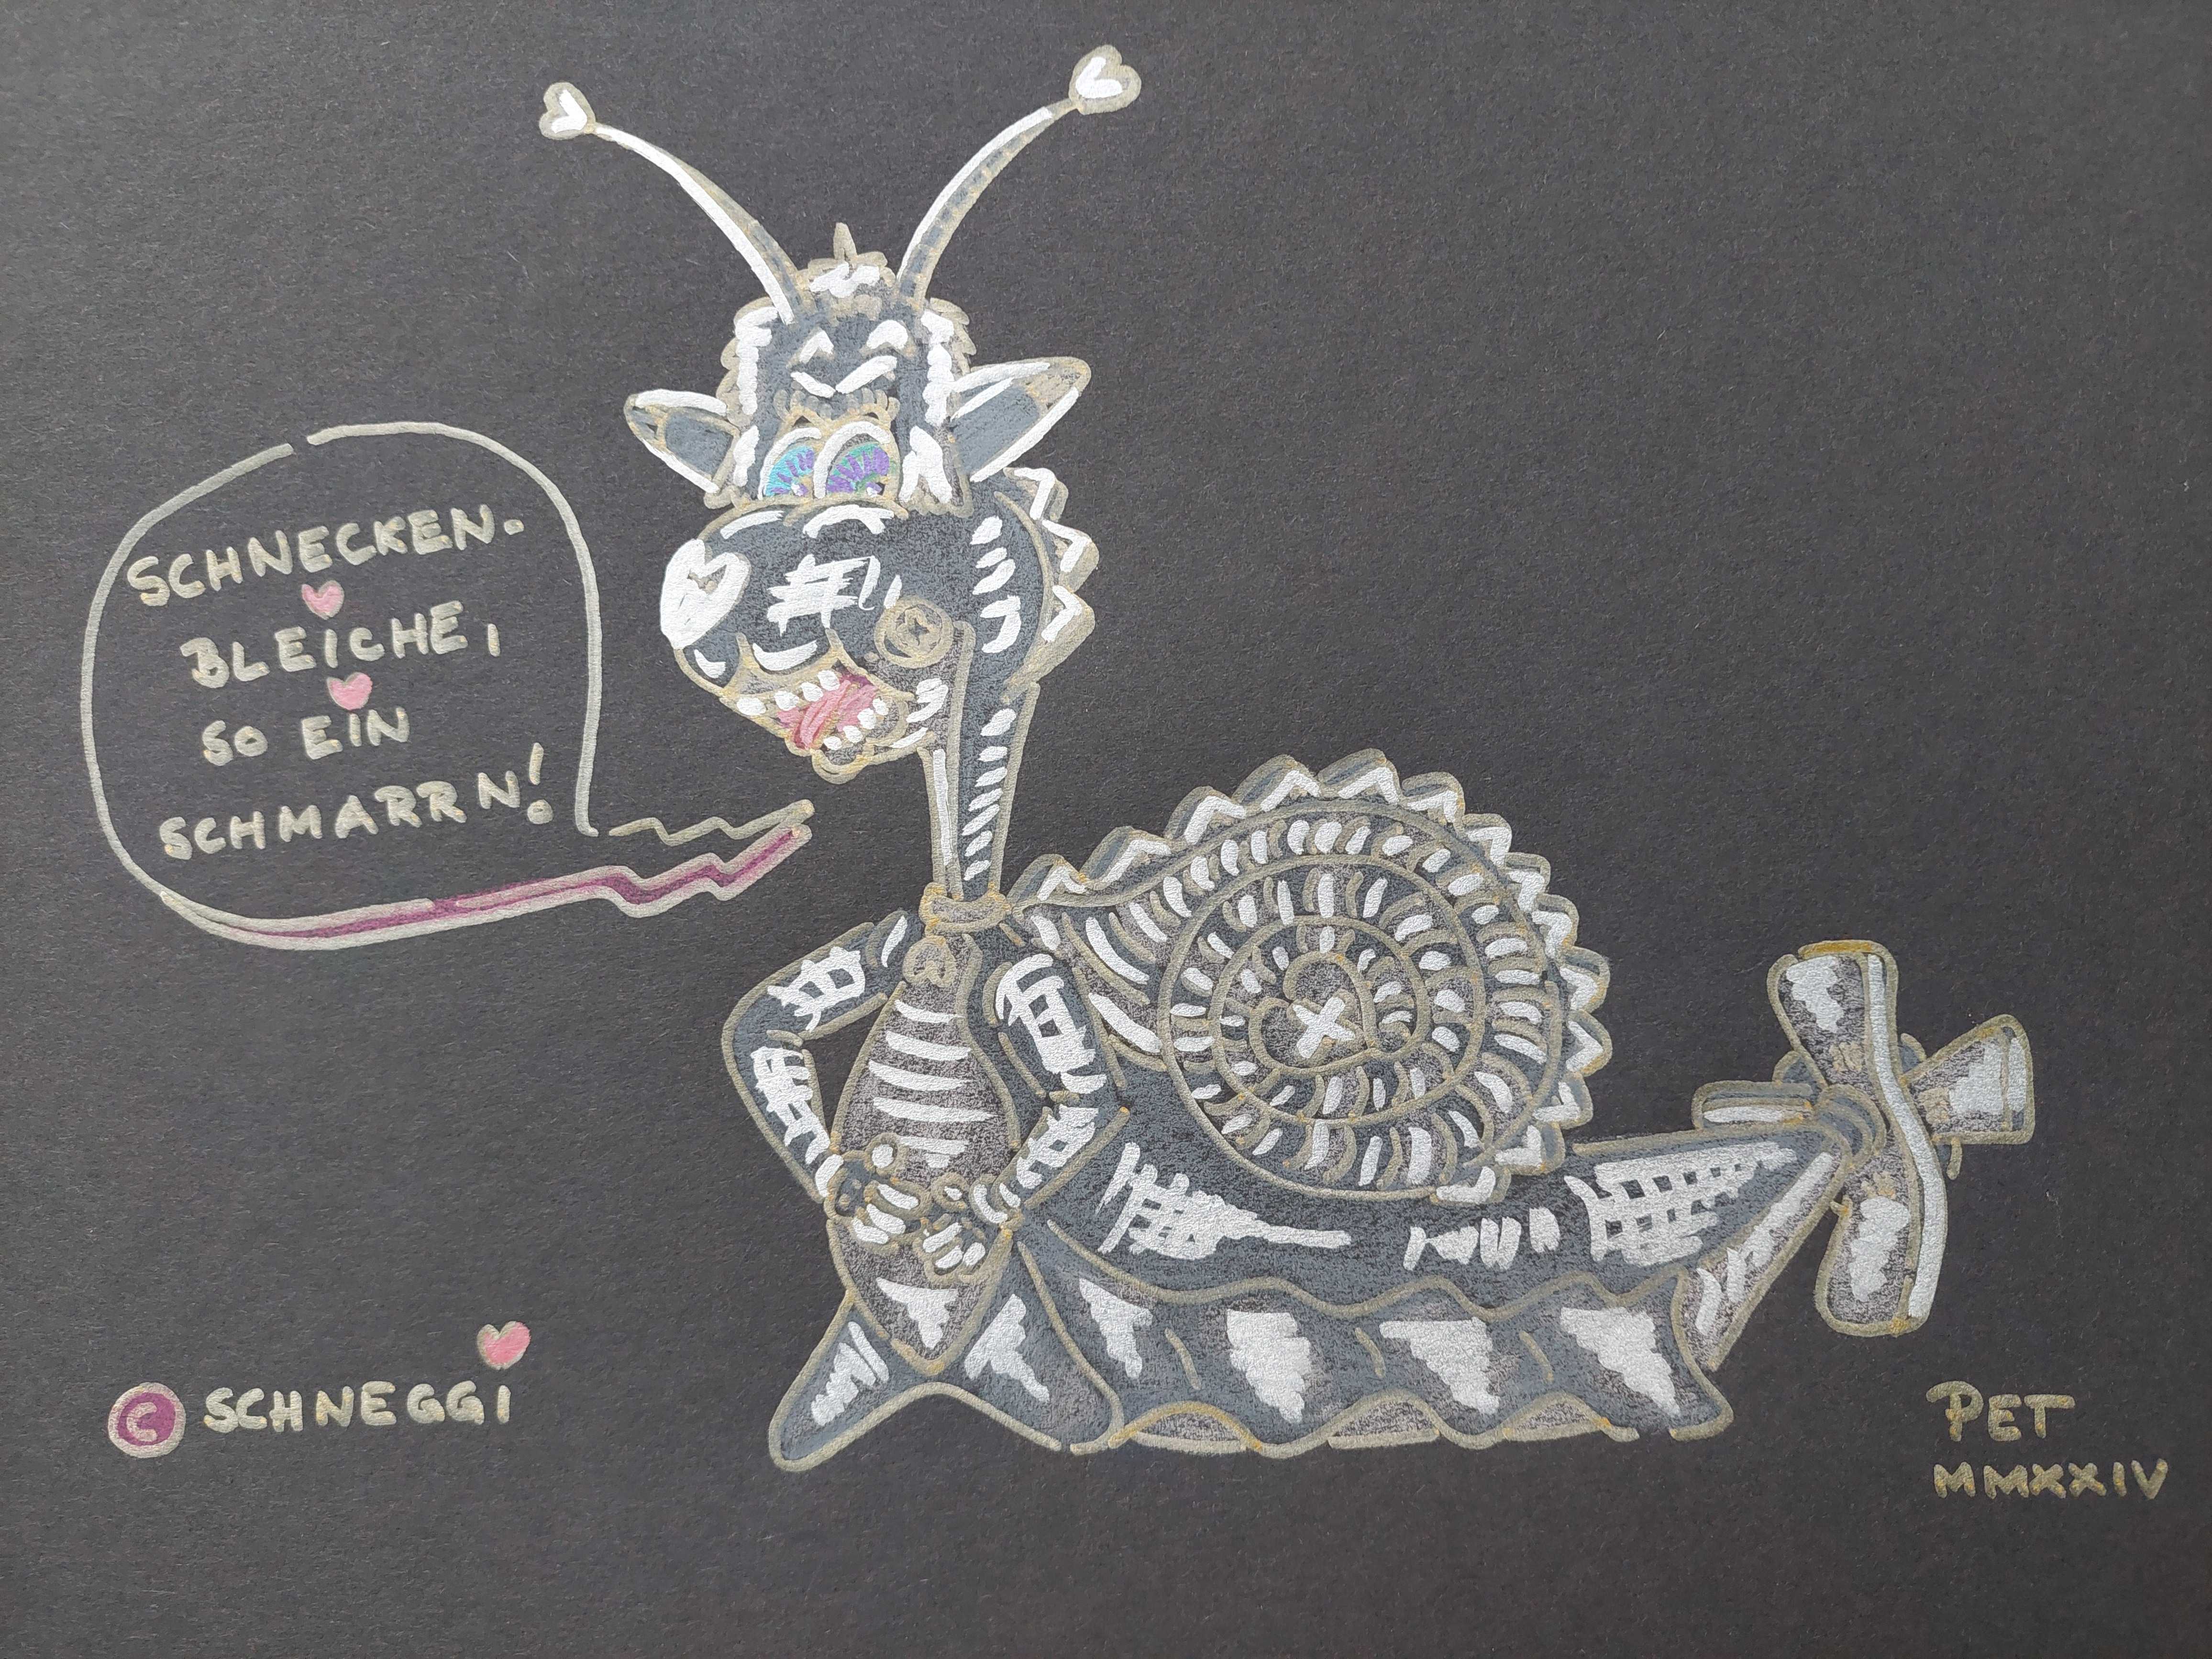 SCHNECKEN-
BLEICHE,
SO EIN
SCHMARRN!
© SCHNEGGI
PET
MMXXIV